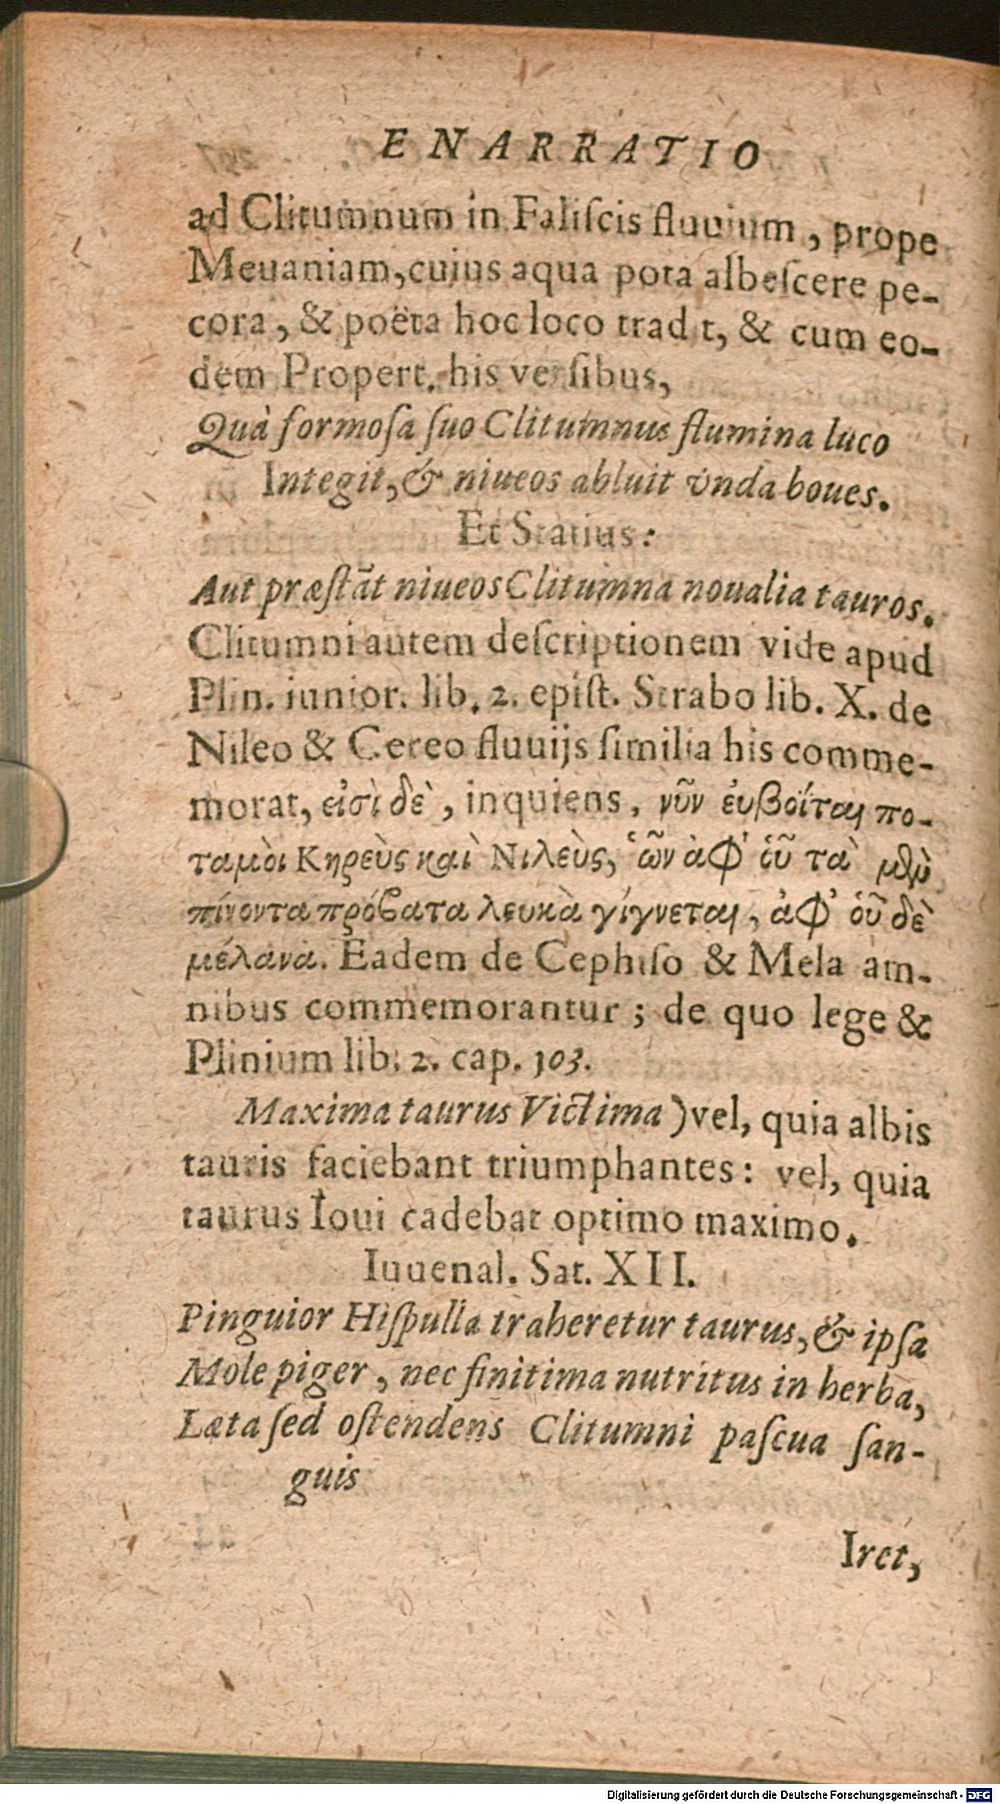 ENARRATIO
ad Clitumnum in Faliſcis fluuium, prope
Meuaniam, cuius aqua pota albeſcere pe-
cora, & poëta hoc loco trad t, & cum eo-
dem Propert. his verſibus,
Quà formoſa ſuo Clitumnus flumina luco
Integit, & niueos abluit vnda boues.
Et Statius:
Aut præſtāt niueos Clitumna noualia tauros.
Clitumni autem deſcriptionem vide apud
Plin. iunior. lib. 2. epiſt. Strabo lib. X. de
Nileo & Cereo fluuijs ſimilia his comme-
morat, εἰσὶ δὲ, inquiens, νῦν ἐυβοῖται πο-
ταμὸι Κηρεὺς καὶ Νιλεὺς, ὧν ἀφ' οὑ τὰ μὲν
πίνοντα πρόβατα λευκὰ γίγνεται, ἀφ' οὑ δὲ
μέλανα. Eadem de Cephiſo & Mela am-
nibus commemorantur; de quo lege &
Plinium lib. 2. cap. 103.
Maxima taurus Victima) vel, quia albis
tauris faciebant triumphantes: vel, quia
taurus Ioui cadebat optimo maximo.
Iuuenal. Sat. XII.
Pinguior Hiſpulla traheretur taurus, & ipſa
Mole piger, nec finitima nutritus in herba,
Læta ſed oſtendens Clitumni paſcua ſan-
guis
Iret,
Digitalisierung gefördert durch die Deutsche Forschungsgemeinschaft - DFG